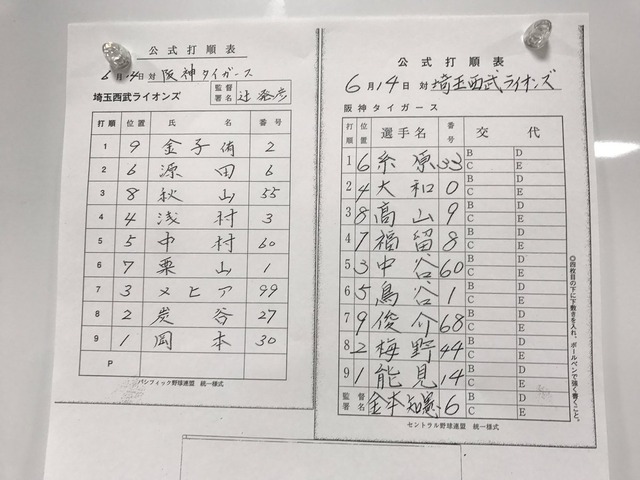 公式打順表
6月14日対 阪神タイガース
埼玉西武ライオンズ 監督署名 辻発彦
打順 位置 氏名 番号
1 9 金子侑 2
2 6 源田 6
3 8 秋山 55
4 4 浅村 3
5 5 中村 60
6 7 栗山 1
7 3 メヒア 99
8 2 炭谷 27
9 1 岡本 30
P
パシフィック野球連盟 統一様式
公式打順表
6月14日対 埼玉西武ライオンズ
阪神タイガース
打順 位置 選手名 番号 交代
1 6 糸原 33 B D
C E
2 4 大和 0 B D
C E
3 8 髙山 9 B D
C E
4 7 福留 8 B D
C E
5 3 中谷 60 B D
C E
6 5 鳥谷 1 B D
C E
7 9 俊介 68 B D
C E
8 2 梅野 44 B D
C E
9 1 能見 14 B D
C E
監督署名 金本知憲 6 B D
C E
セントラル野球連盟 統一様式
◎四枚目の下に下敷きを入れ、ボールペンで強く書くこと。